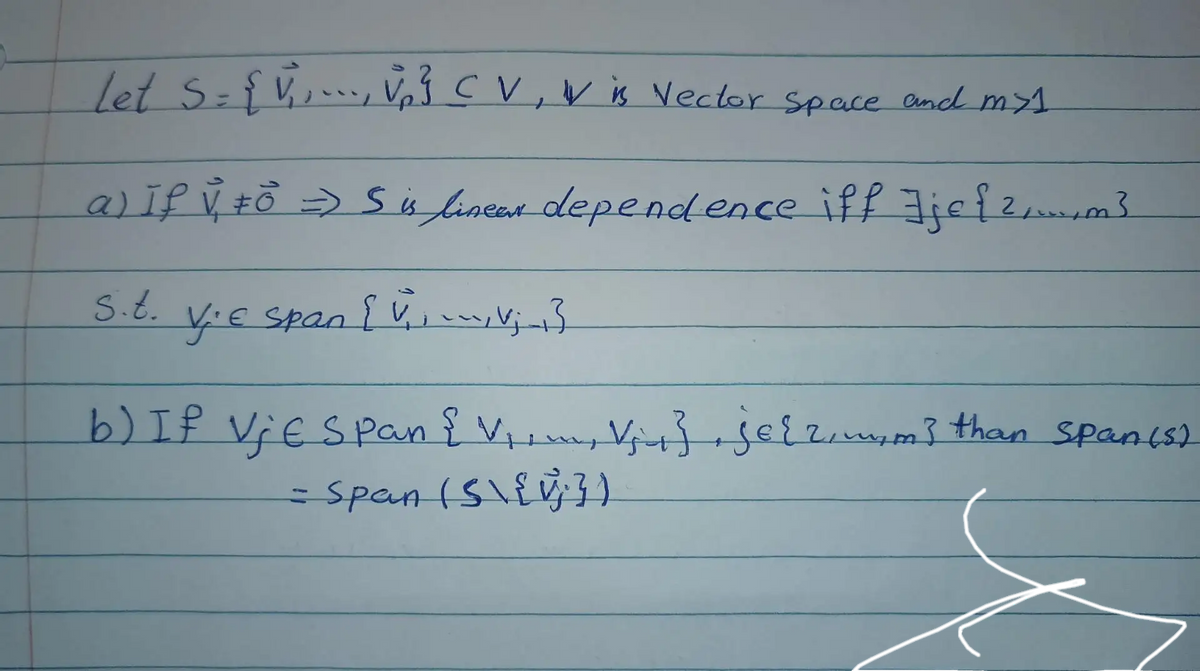 Let S = { v⃗₁, ..., v⃗ₚ} ⊆ V, V is Vector space and m>1
a) If v⃗₁ ≠ 0⃗ ⇒ S is linear dependence iff ∃j∈{2,...,m}
s.t. vⱼ ∈ span { v⃗₁, ..., vⱼ₋₁}
b) If Vⱼ ∈ span { V₁, ..., Vⱼ₋₁}, j∈{2,...,m} than span(s)
= span (S\{v⃗ⱼ})